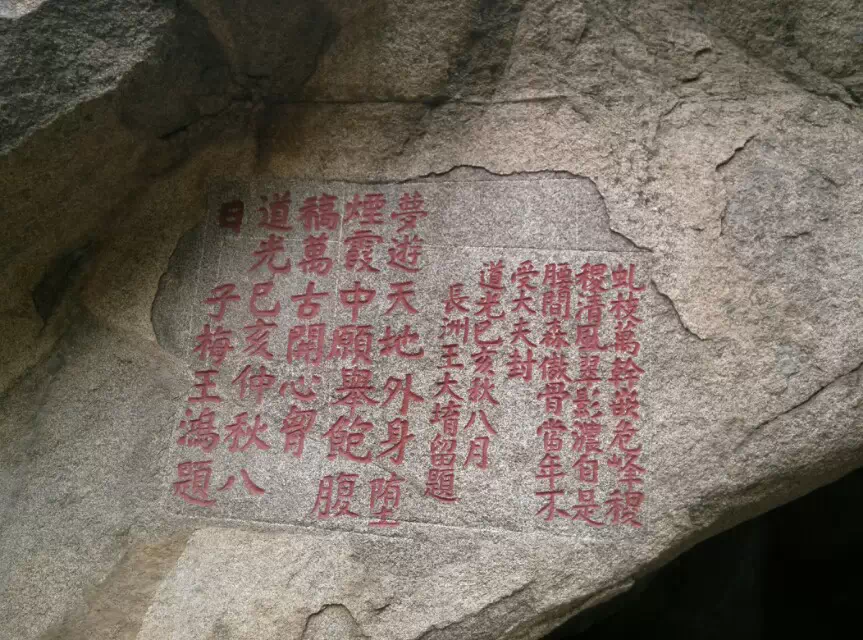 虬枝萬幹嵌危峰稷
稷清風翠影濃自是
腰間森傲骨當年不
受大夫封
道光己亥秋八月
長洲王大堉留題
夢遊天地外身堕
煙霞中願舉飽腹
稿萬古開心胷
道光己亥仲秋八
日 子梅王鴻題